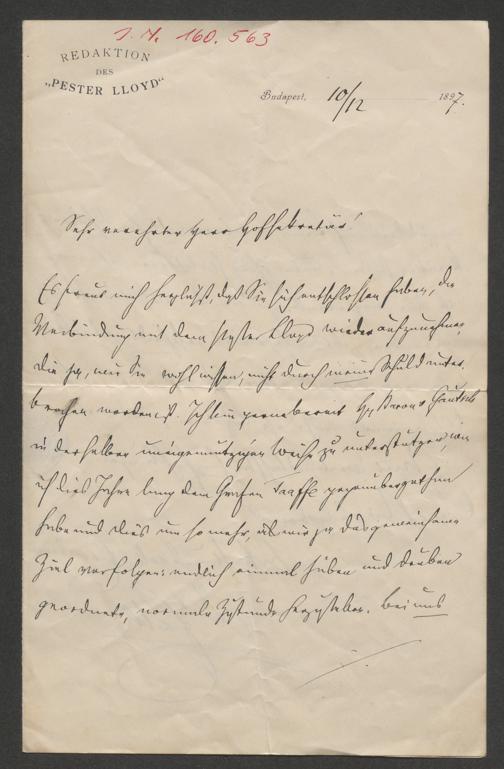 J. N. 160.563
REDAKTION
DES
„PESTER LLOYD“
Budapest, 10/12 1897.
Sehr verehrter Herr Hofsekretär!
Es freut mich herzlichst, daß Sie sich entschlossen haben, die
Verbindung mit dem Pester Lloyd wieder aufzunehmen,
die ja, wie Sie wohl wissen, nicht durch meine Schuld unter-
brochen worden ist. Ich bin gerne bereit Baron Gautsch
in derselben uneigennützigen Weise zu unterstützen, wie
ich dies Jahre lang dem Grafen Taaffe gegenüber gethan
habe und dies um so mehr, als wir ja das gemeinsame
Ziel verfolgen: endlich einmal hüben und drüben
geordnete, normale Zustände herzustellen. Bei uns